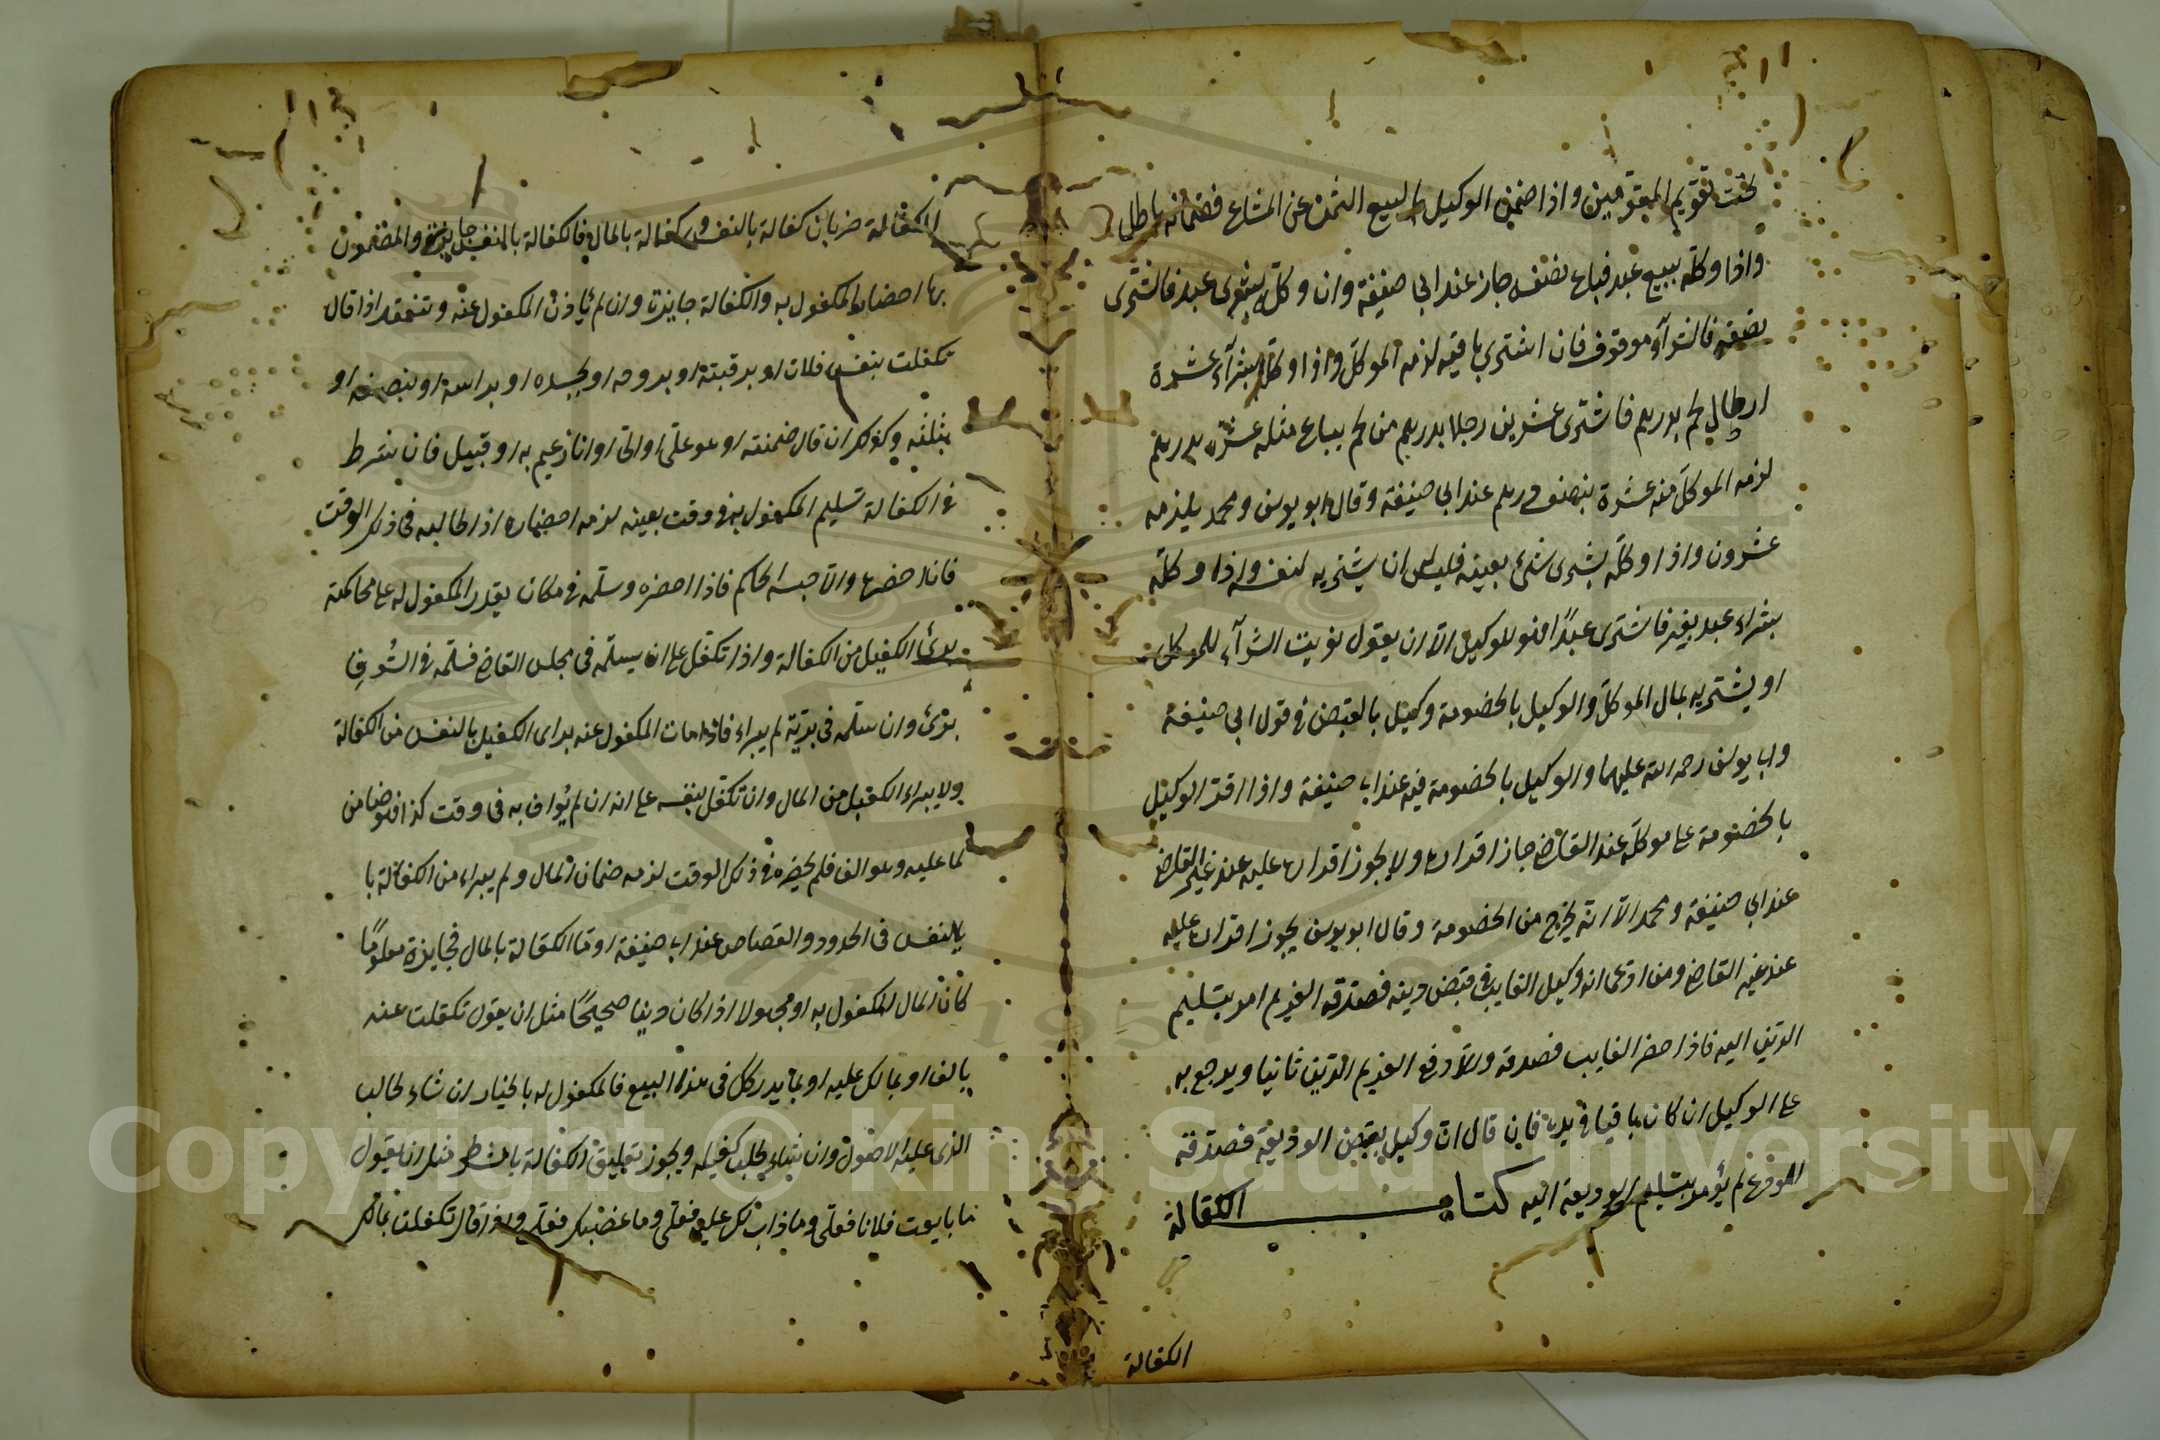 تحت تقويم المقومين واذا ضمن الوكيل بالبيع الثمن عن المبتاع فضمانه باطل
واذا وكله ببيع عبد فباع نصفه جاز عند ابي حنيفة وان وكله بشرى عبد فاشترى
نصفه فالشرآء موقوف فان اشترى باقيه لزم الموكل واذا وكله بشرآء عشرة
ارطال لحم بدرهم فاشترى عشرين رطلا بدرهم من لحم يباع مثله عشرة بدرهم
لزم الموكل منه عشرة بنصف درهم عند ابي حنيفة وقال ابو يوسف ومحمد يلزمه
عشرون واذا وكله بشرى شئ بعينه فليس ان يشتريه لنفسه واذا وكله
بشراء عبد بغير فاشترى عبدًا فهو للوكيل الا ان يقول نويت الشرآء للموكل
او يشتريه بمال الموكل والوكيل بالخصومة وكيل بالقبض في قول ابي حنيفة
واب يوسف رحمه الله عليهما والوكيل بالخصومة فيه عند اب حنيفة واذا اقر الوكيل
بالخصومة على موكله عند القاضي جاز اقراره ولا يجوز اقراره عليه عند غير القاضي
عند ابي حنيفة ومحمد الا انه يخرج من الخصومة وقال ابو يوسف يجوز اقراره عليه
عند غير القاضي ومن ادعى انه وكيل الغايب في قبض دينه فصدقه الغريم امر بتسليم
الدين اليه فاذا حضر الغايب فصدقه والا دفع الغريم الدين ثانيا ويرجع به
على الوكيل ان كان باقيا في يده فان قال اني وكيل بقبض الوديعة فصدقه
المودع لم يؤمر بتسليم الوديعة اليه كتاب الكفالة
الكفالة
الكفالة ضربان كفالة بالنفس وكفالة بالمال فالكفالة بالنفس جايزة والمضمون
بها احضار المكفول به والكفالة جايزة وان لم يأذن المكفول عنه وتنعقد اذا قال
تكفلت بنفس فلان او برقبته او بروحه او بجسده او براسه او بنصفه او
بثلثه وكذلك ان قال ضمنته او هو علي او الي او انا زعيم به او قبيل فان شرط
في الكفالة تسليم المكفول به في وقت بعينه لزمه احضاره اذا طالبه في ذلك الوقت
فان احضره والا حبسه الحاكم فاذا احضره وسلمه في مكان يقدر المكفول له على محاكمته
برئ الكفيل من الكفالة واذا تكفل على انه يسلمه في مجلس القاضي فسلمه في السوق
برئ وان سلمه في برية لم يبراء فاذا مات المكفول عنه براى الكفيل بالنفس من الكفالة
ولا يبراء الكفيل من المال وان تكفل بنفسه على انه ان لم يواف به في وقت كذا فهو ضامن
لما عليه وهو الف فلم يحضره في ذلك الوقت لزمه ضمان المال ولم يبراء من الكفالة با
بالنفس في الحدود والقصاص عند اب حنيفة واما الكفالة بالمال فجايزة معلومًا
كان المال المكفول به او مجهولا اذا كان دينا صحيحًا مثل ان يقول تكفلت عنه
بالف او بمالك عليه او بما يدركك في هذا البيع فالمكفول له بالخيار ان شاء طالب
الذي عليه الاصول وان شاء طلب كفيله ويجوز تعليق الكفالة بالشرط مثل ان يقول
ما بايعت فلانا فعلي وما ذاب لك عليه فعلي وما غصبك فعلي واذا قال تكفلت بمالك
Copyright © King Saud University
1957